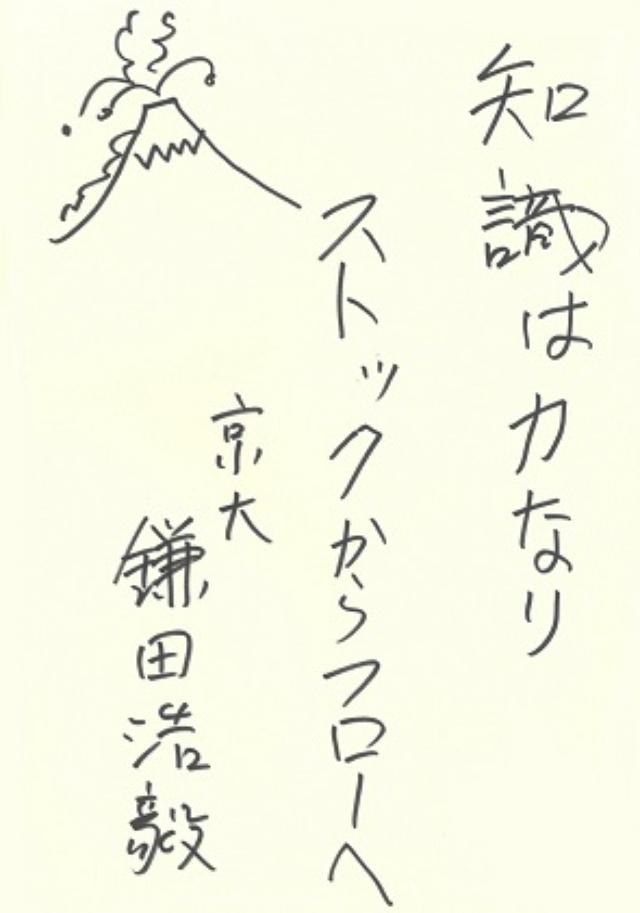 知識は力なり
ストックからフローへ
京大
鎌田浩毅